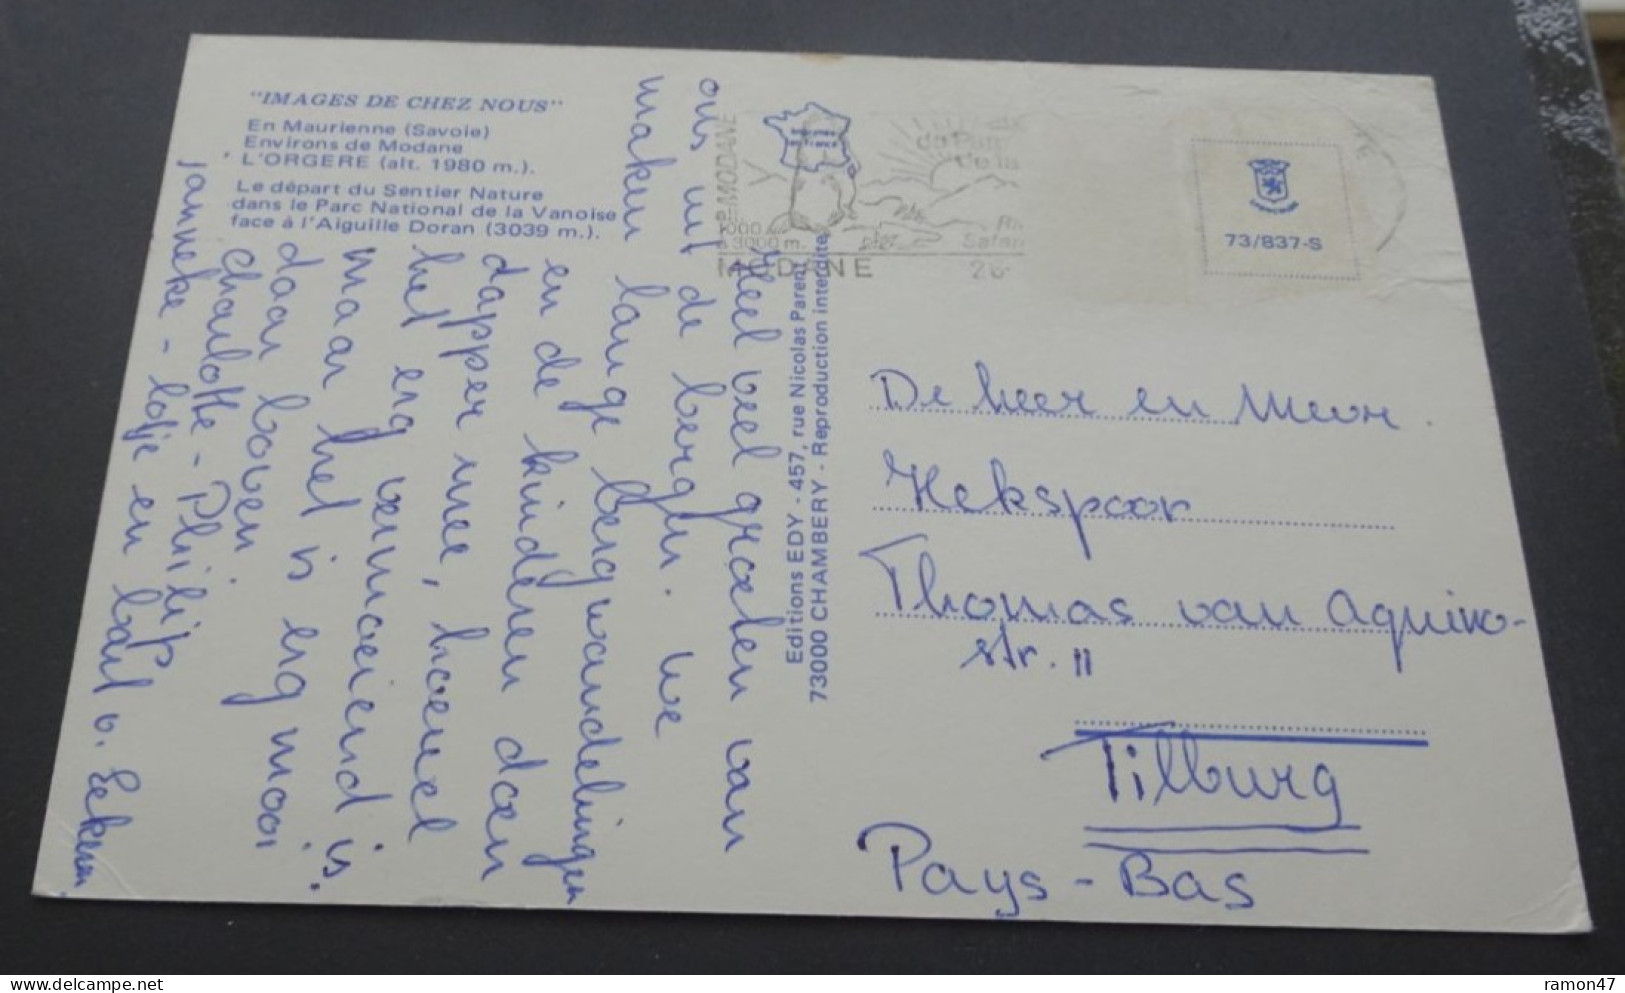 "IMAGES DE CHEZ NOUS"
En Maurienne (Savoie)
Environs de Modane
L'ORGERE (alt. 1980 m.).
Le départ du Sentier Nature
dans le Parc National de la Vanoise
face à l'Aiguille Doran (3039 m.).
Heel veel groeten van
ons uit de bergen. We
maken lange bergwandelingen
en de kinderen doen
dapper mee, hoewel
het erg vermoeiend is.
maar het is erg mooi
daar boven
Charlotte - Philip
Janneke - Lotje en Bart v.
Editions EDY - 457, rue Nicolas Parent
73000 CHAMBERY - Reproduction interdite
MODANE
1000
à 3000 m.
MODANE
du Parc
de la
Safari
73/837-S
De heer en Mevr.
Hekspoor
Thomas van Aquino-
str. 11
Tilburg
Pays-Bas
ramon47